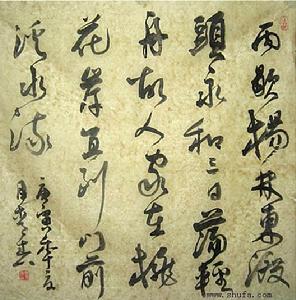 雨歇楊林東渡
頭永和三日蕩輕
舟故人家在桃
花岸直到門前
溪水流
庚寅年夏
月
www.shufa.com